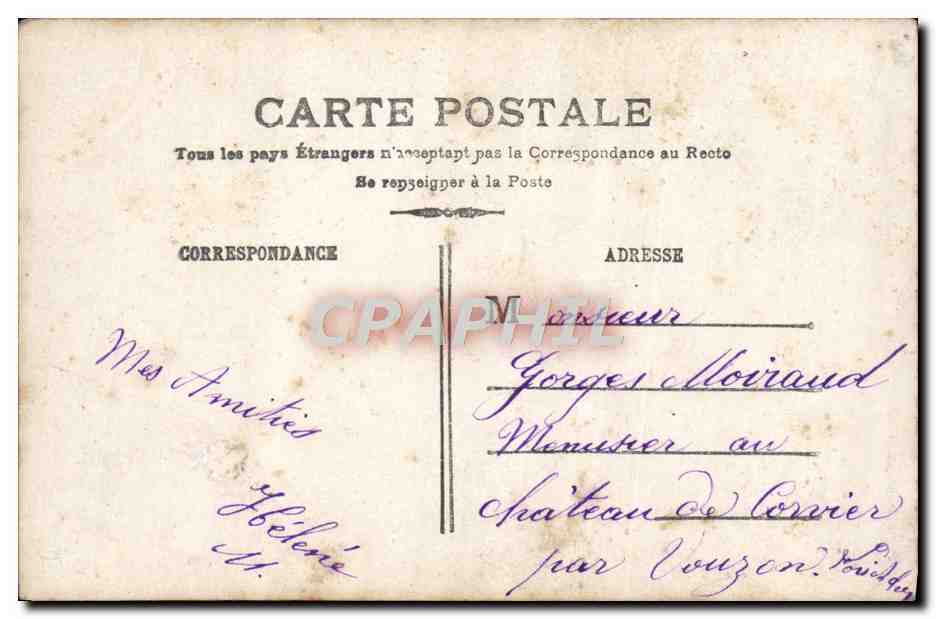 CARTE POSTALE
Tous les pays Étrangers n'acceptent pas la Correspondance au Recto
Se renseigner à la Poste
CORRESPONDANCE
ADRESSE
CPAPHIL
Mes Amitiés
Hélène
M.
Monsieur
Gorges Moiraud
Menusier au
château de Corvier
par Vouzon.